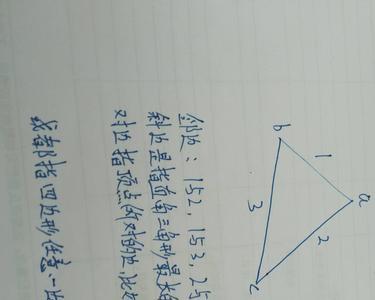 a
b
c
1
2
3
邻边：1与2，1与3，2与
斜边是指直角三角形最大的
对边指顶点所对的边，比如
或者指四边形任意一边